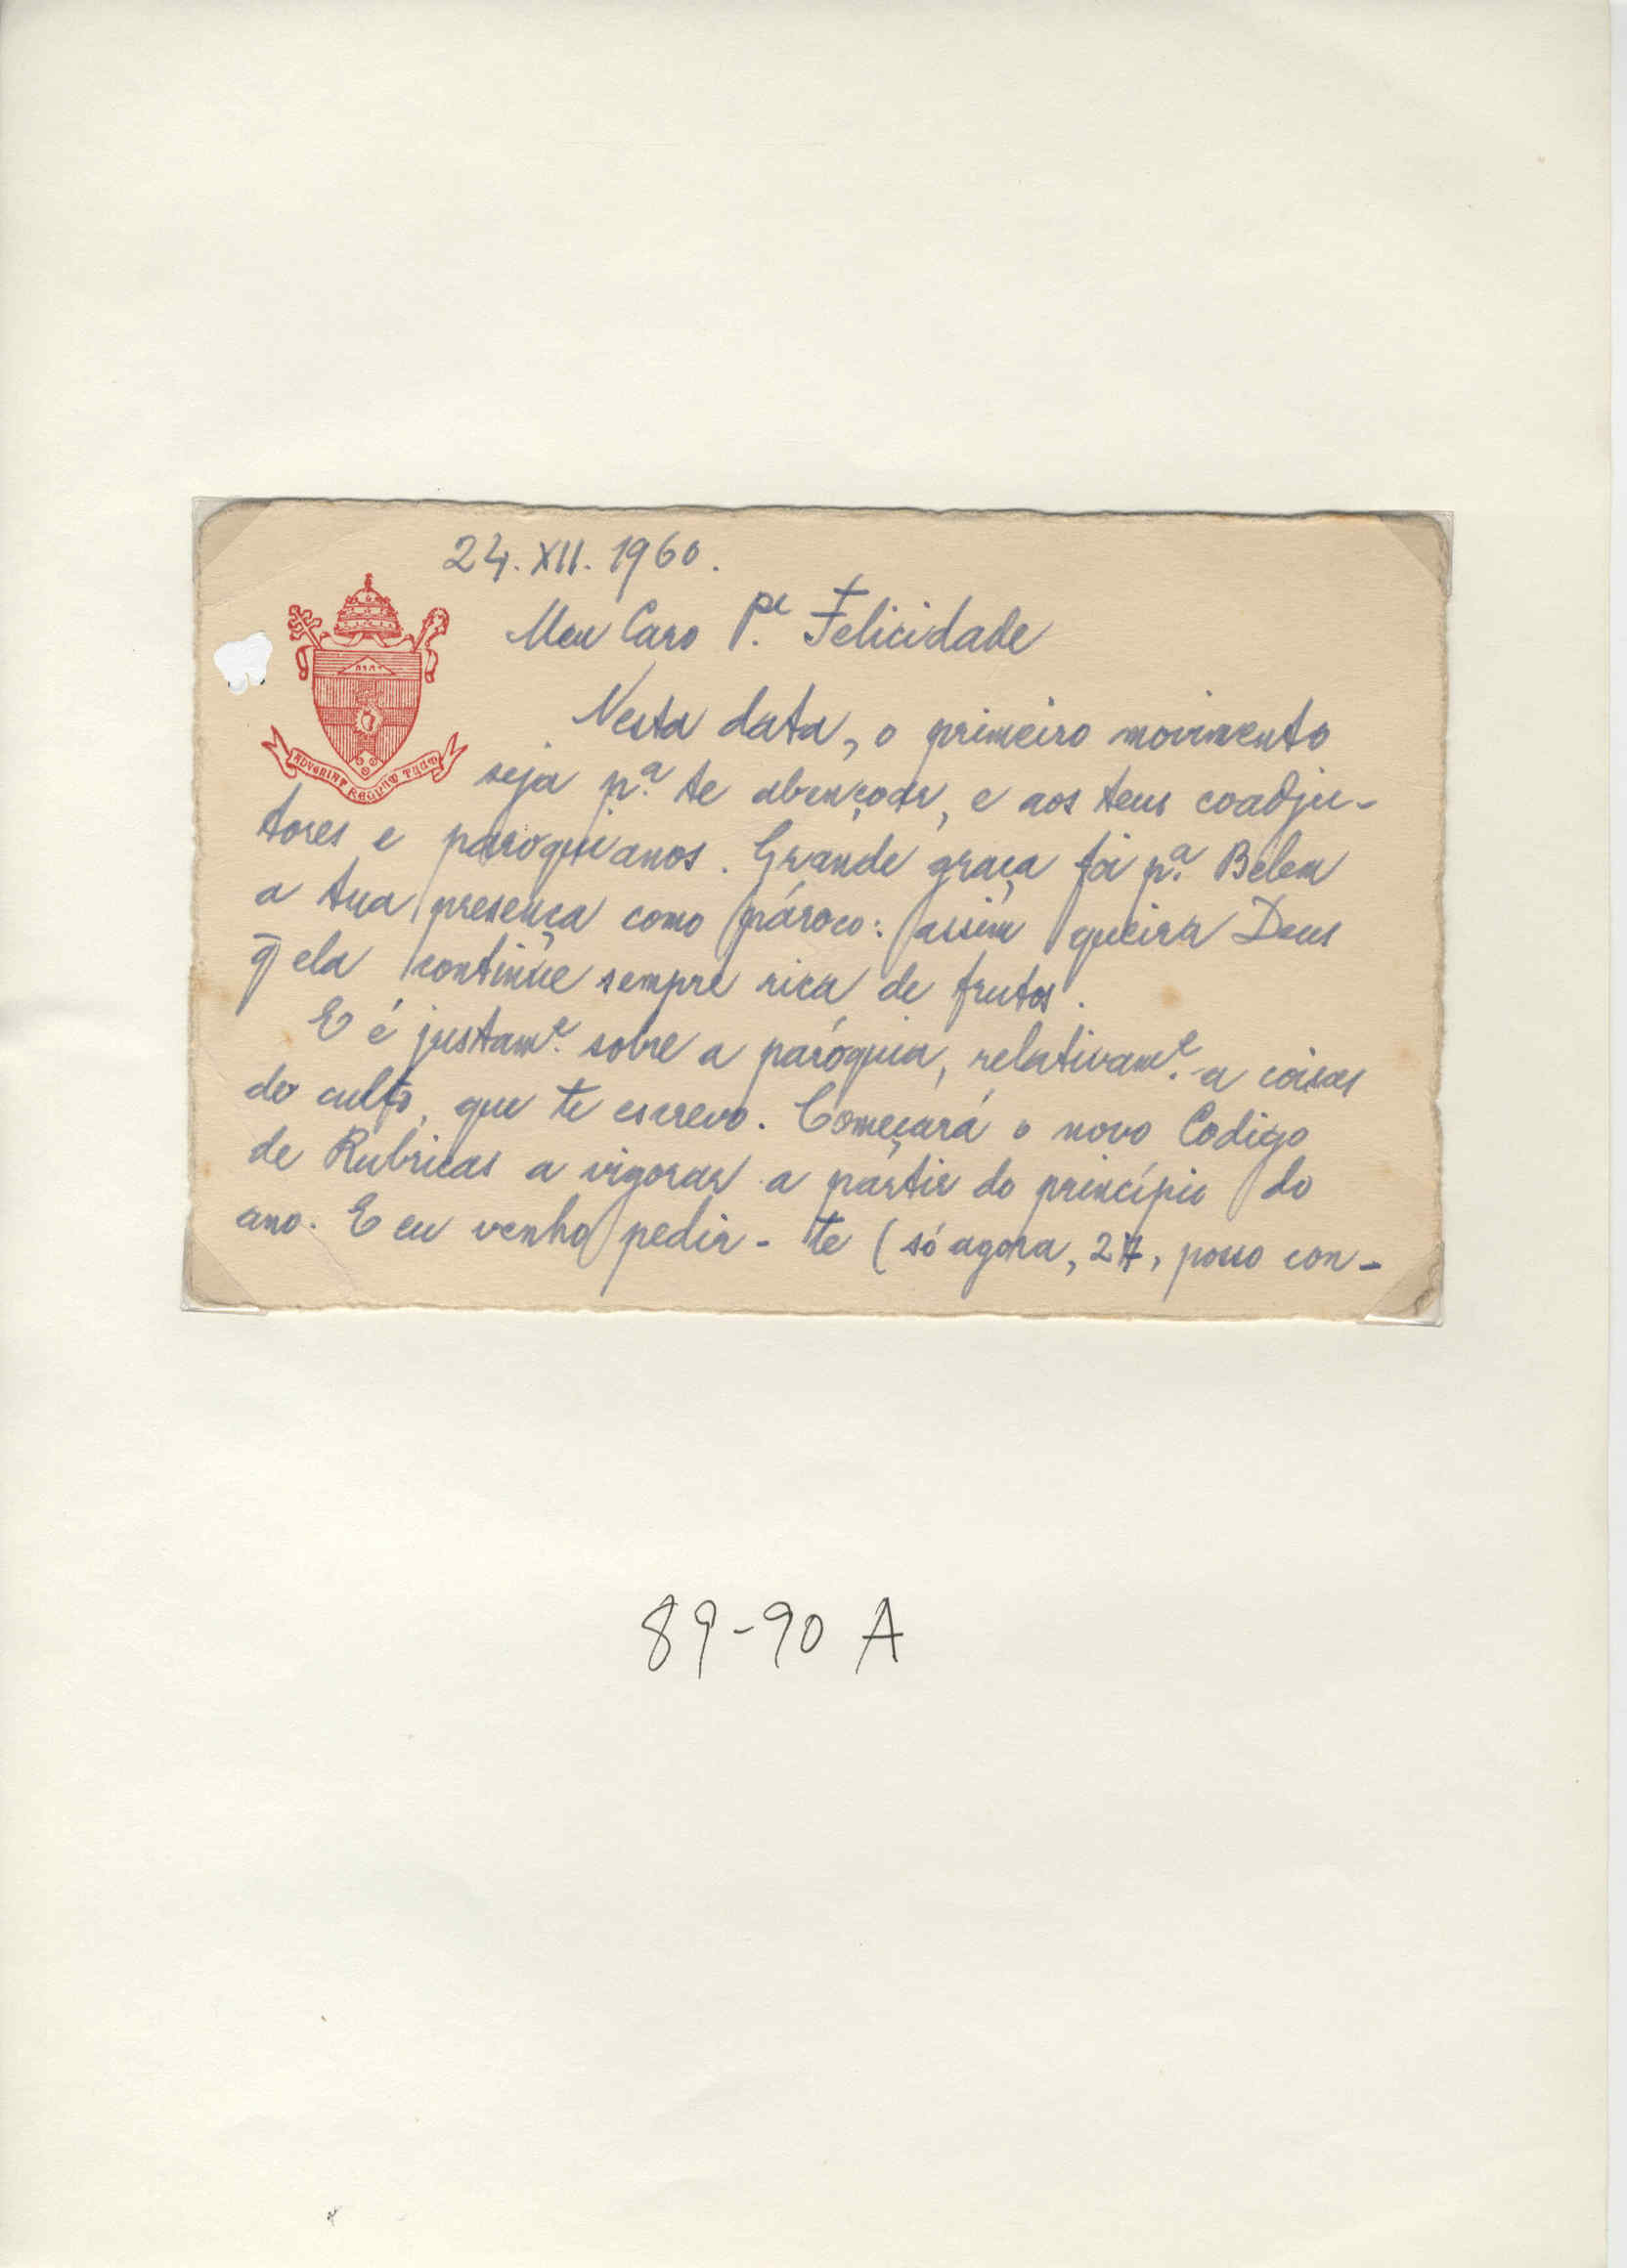 24. XII. 1960.
Meu Caro P.e Felicidade
Nesta data, o primeiro movimento
seja p.a te abençoar, e aos teus coadju-
tores e paroquianos. Grande graça foi p.a Belem
a tua presença como pároco: assim queira Deus
q̄ ela continue sempre rica de frutos.
E é justam.e sobre a paróquia, relativam.e a coisas
do culto, que te escrevo. Começará o novo Codigo
de Rubricas a vigorar a partir do princípio do
ano. E eu venho pedir-te (só agora, 24, posso con-
ADVENIAT REGNUM TUUM
89-90 A